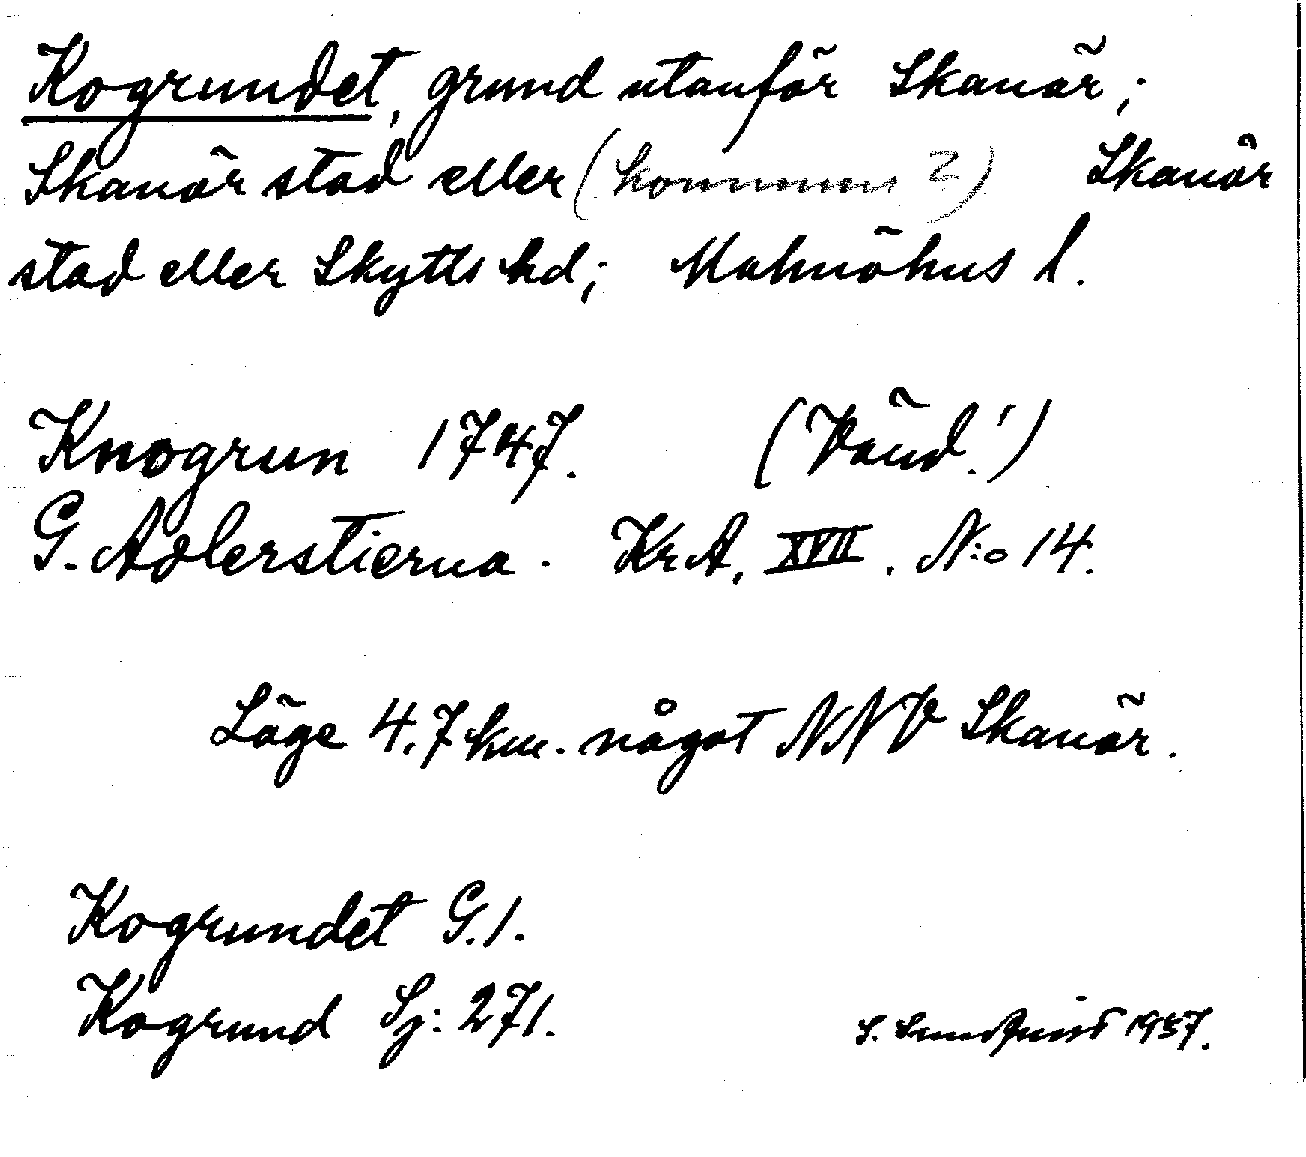 Kogrundet, grund utanför Skanör;
Skanör stad eller (kommun?) Skanör
stad eller Skytts hd; Malmöhus l.
Knogrun 1747. (Vänd!)
G. Adlerstierna. KrA, XVII. N:o 14.
Läge 4.7 km. något NNV Skanör.
Kogrundet G.1.
Kogrund Sj: 271.
S. Sundquist 1937.